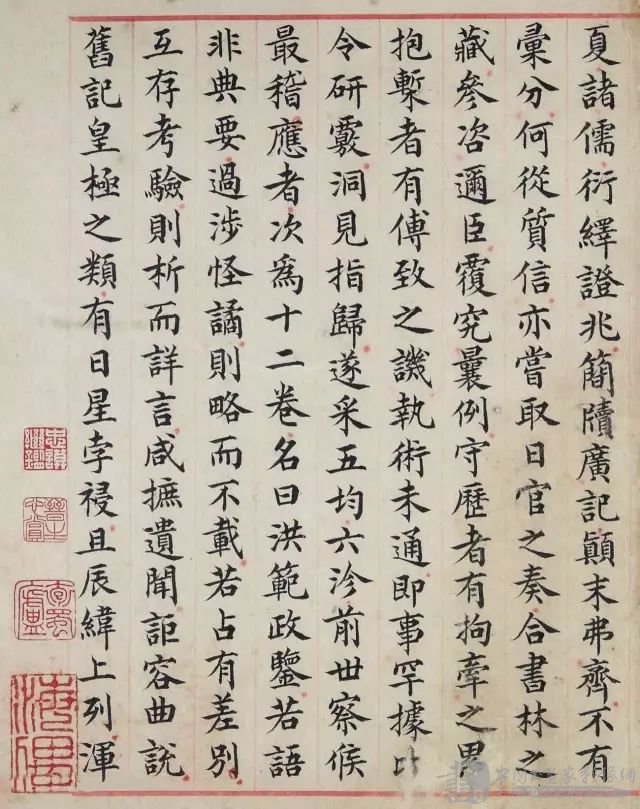 夏諸儒衍繹證兆簡牘廣記顛末弗齊不有
彙分何從質信亦嘗取日官之奏合書林之
藏參咨邇臣覆究曩例守歷者有拘牽之畏
抱槧者有傅致之譏執術未通即事罕據比
令研覈洞見指歸遂采五均六沴前世察候
最稽應者次爲十二卷名曰洪範政鑒若語
非典要過涉怪譎則略而不載若占有差別
互存考驗則析而詳言咸摭遺聞詎容曲說
舊記皇極之類有日星孛祲且辰緯上列渾